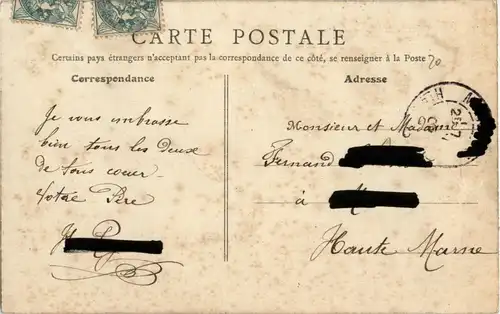 CARTE POSTALE
Certains pays étrangers n'acceptent pas la correspondance de ce côté, se renseigner à la Poste
Correspondance
Je vous embrasse
bien tous les deux
de tout coeur
Votre Père
Adresse
Monsieur et Madame
Fernand
à
Haute Marne